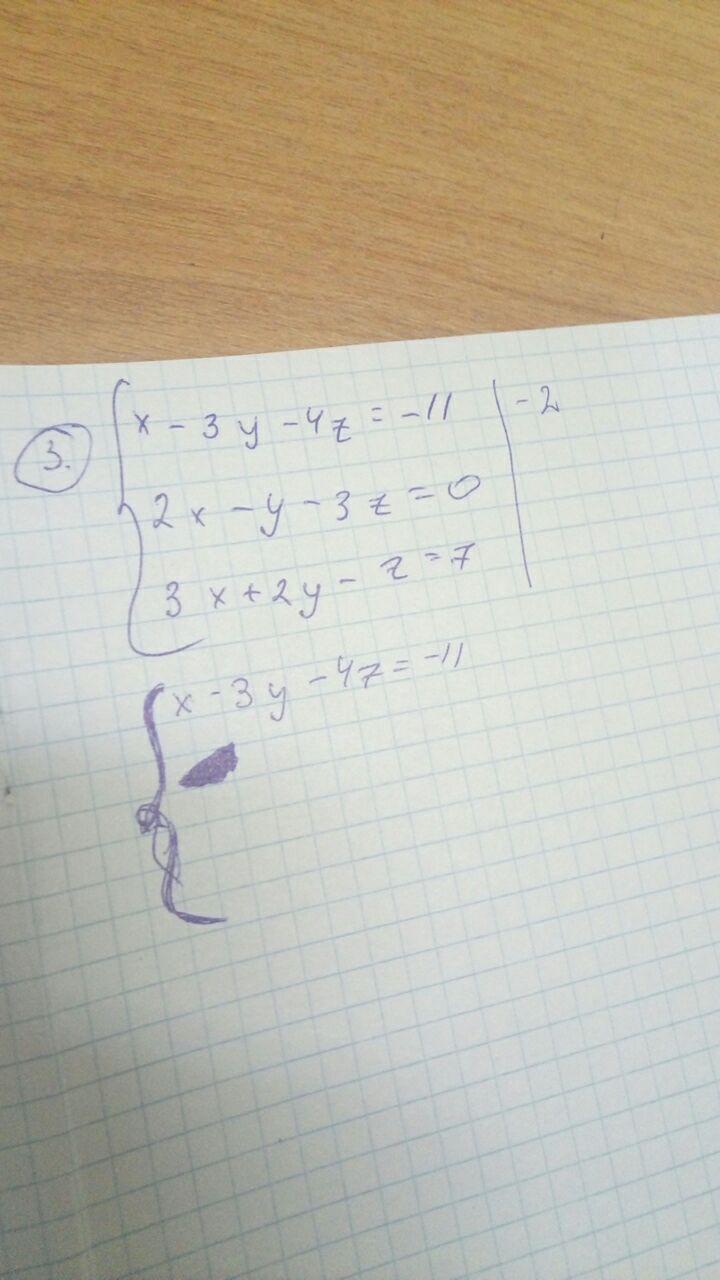 3. x - 3y - 4z = -11 | -2
2x - y - 3z = 0
3x + 2y - z = 7
x - 3y - 4z = -11